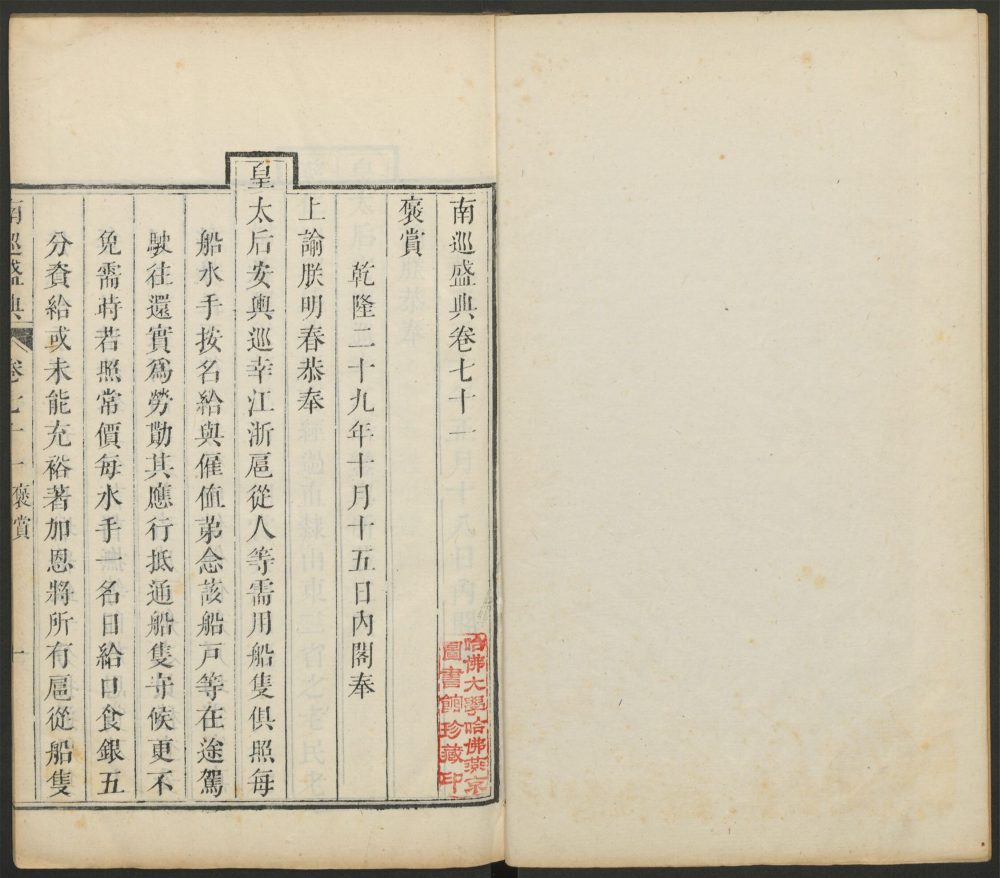 南巡盛典卷七十一
褒賞
乾隆二十九年十月十五日內閣奉
上諭朕明春恭奉
皇太后安輿巡幸江浙扈從人等需用船隻俱照每
船水手按名給與僱値苐念該船戶等在途駕
駛往還實爲勞勩其應行抵通船隻守候更不
免需時若照常價每水手一名日給口食銀五
分資給或未能充裕著加恩將所有扈從船隻
南巡盛典 卷七十一 褒賞 一
哈佛大學哈佛燕京
圖書館珍藏印